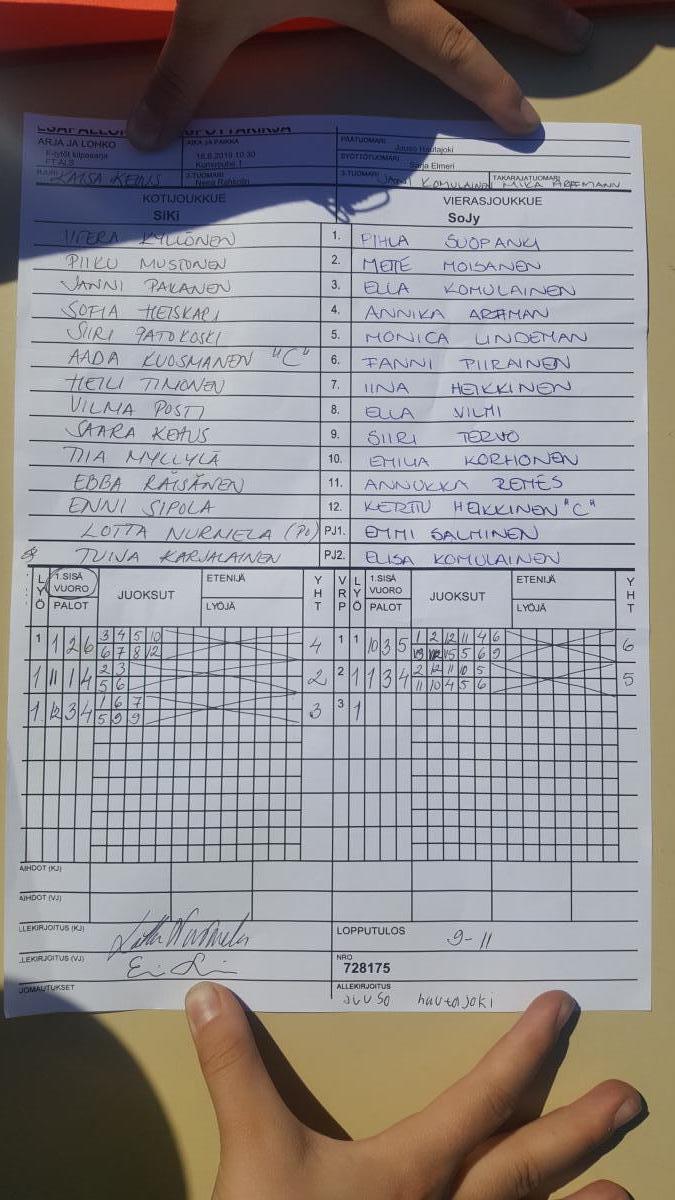 ARJA JA LOHKO
AIKA JA PAIKKA
PÄÄTUOMARI
Juuso Hautajoki
F-tytöt kilpasarja
18.8.2019 10.30
SYÖTTÖTUOMARI
Sarja Elmeri
2-TUOMARI
3-TUOMARI
JANNI KOMULAINEN
TAKARAJATUOMARI
MIKA
KAISA KEHUS
KOTIJOUKKUE
VIERASJOUKKUE
SiKi
SoJy
KYLLÖNEN 1. PIHLA SUOPANKI
PIIKU MUSTONEN 2. METTE MOISANEN
JANNI PAKANEN 3. ELLA KOMULAINEN
SOFIA HEISKARI 4. ANNIKA
SIIRI 5. MONICA LINDEMAN
AADA KUOSMANEN "C" 6. FANNI PIIRAINEN
HEILI TIMONEN 7. IINA HEIKKINEN
VILMA POSTI 8. ELLA VILMI
SAARA KEHUS 9. SIIRI TERVO
TIIA MYLLYLÄ 10. EMILIA KORHONEN
EBBA RÄISÄNEN 11. ANNUKKA REMES
ENNI SIPOLA 12. KERTTU HEIKKINEN "C"
LOTTA NURMELA (PJ) PJ1. EMMI SALMINEN
TUIJA KARJALAINEN PJ2. ELISA KOMULAINEN
LYÖ 1.SISÄ VUORO PALOT JUOKSUT ETENIJÄ LYÖJÄ YHT VRP LYÖ 1.SISÄ VUORO PALOT JUOKSUT ETENIJÄ LYÖJÄ YHT
1 1 2 6 3 4 5 10 4 1 1 10 3 5 1 2 12 11 4 6 6
6 7 8 12 5 6 9
1 11 1 4 2 3 2 2 1 1 3 4 2 12 11 10 5 5
5 6 11 10 4 5 6
1 12 3 4 1 6 7 3 3 1
5 9 9
AIHDOT (KJ)
AIHDOT (VJ)
LLEKIRJOITUS (KJ)
Lotta Nurmela
LOPPUTULOS
9-11
LLEKIRJOITUS (VJ)
NRO
728175
JOMAUTUKSET
ALLEKIRJOITUS
Juuso hautajoki